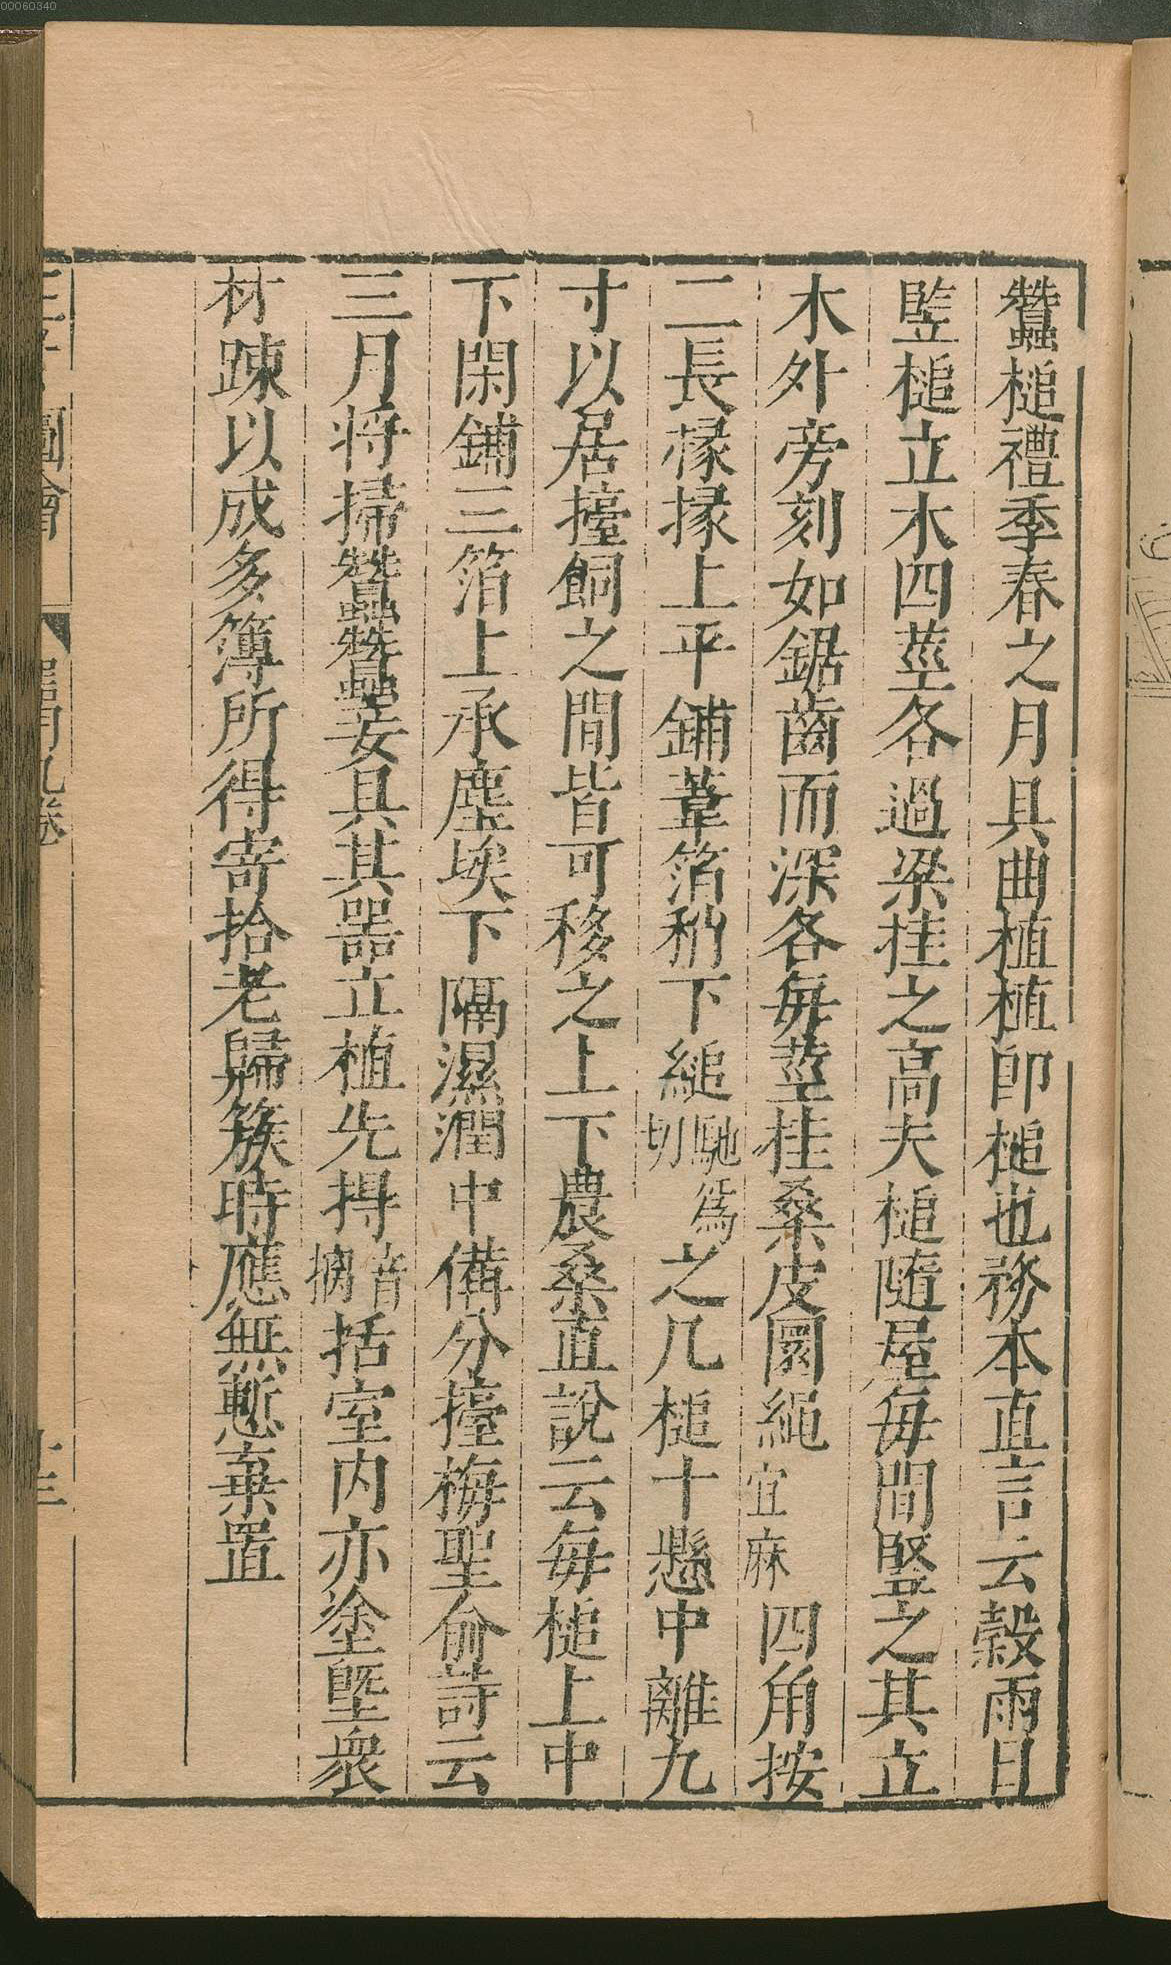 蠶槌禮季春之月具曲植植即槌也務本直言云穀雨日
豎槌立木四莖各過梁挂之高夫槌隨屋每間豎之其立
木外旁刻如鋸齒而深各每莖挂桑皮圜繩宜麻四角按
二長椽椽上平鋪葦箔稍下縋馳爲切之凡槌十懸中離九
寸以居擡飼之間皆可移之上下農桑直說云每槌上中
下閑鋪三箔上承塵埃下隔濕潤中備分擡梅聖俞詩云
三月將掃蠶蠶妾具其器立植先持音摘括室内亦塗塈衆
材踈以成多簿所得寄拾老歸簇時應無慙棄置
三才圖會
器用九卷
十三
00060340